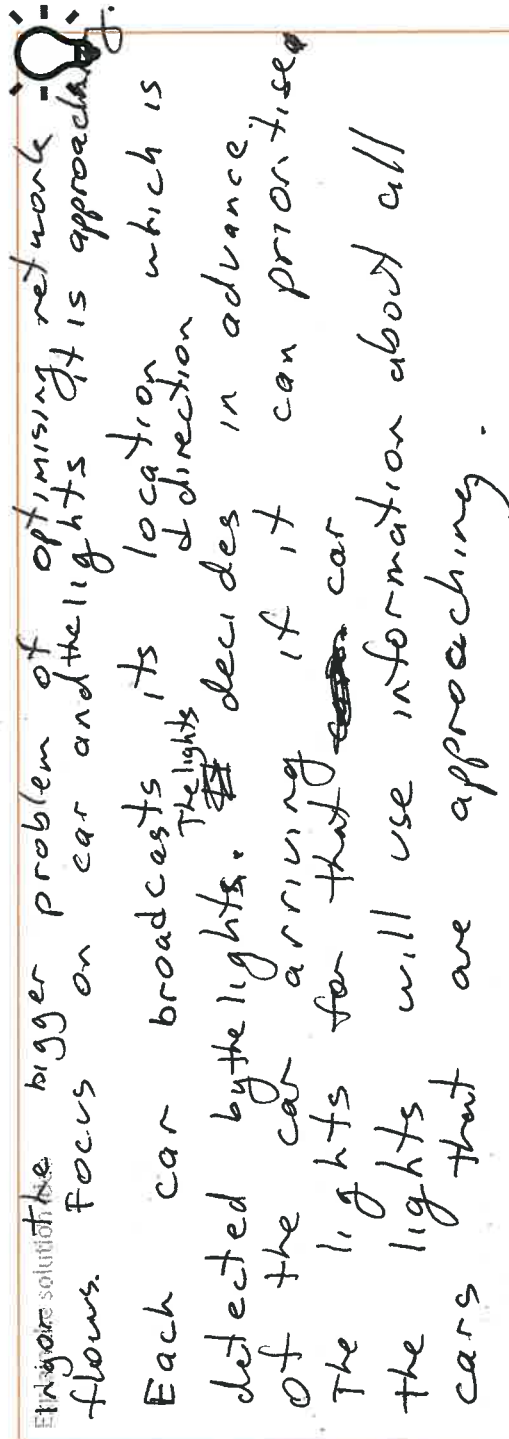 Explain the solution idea
Ingore the bigger problem of optimising network
flows. Focus on car and the lights it is approaching.
Each car broadcasts its location & direction which is
detected by the lights. The lights decides in advance
of the car arriving if it can prioritise
The lights for that car
the lights will use information about all
cars that are approaching.